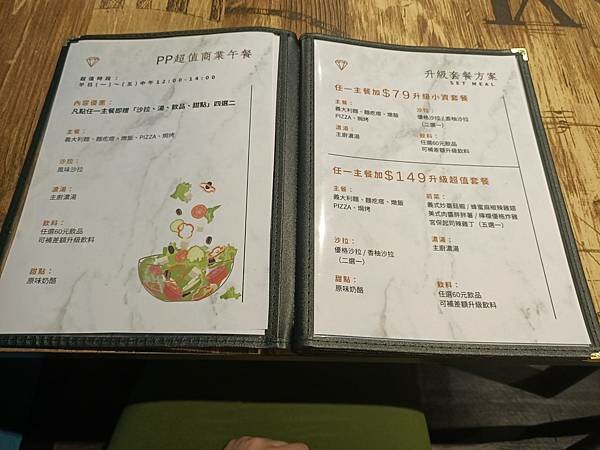 PP超值商業午餐
超值時段：
平日(一)~(五)中午12:00-14:00
內容優惠：
凡點任一主餐即贈「沙拉、湯、飲品、甜點」四選二
主餐：
義大利麵、麵疙瘩、燉飯、PIZZA、焗烤
沙拉：
風味沙拉
濃湯：
主廚濃湯
飲料：
任選60元飲品
可補差額升級飲料
甜點：
原味奶酪
升級套餐方案
SET MEAL
任一主餐加$79升級小資套餐
主餐：
義大利麵、麵疙瘩、燉飯
PIZZA、焗烤
沙拉：
優格沙拉/香柚沙拉
（二選一）
濃湯：
主廚濃湯
飲料：
任選60元飲品
可補差額升級飲料
任一主餐加$149升級超值套餐
主餐：
義大利麵、麵疙瘩、燉飯
PIZZA、焗烤
前菜：
義式炒蘑菇蝦/蜂蜜麻椒辣雞翅
美式肉醬胖胖薯/檸檬優格炸雞
宮保起司辣雞丁（五選一）
沙拉：
優格沙拉/香柚沙拉
（二選一）
濃湯：
主廚濃湯
甜點：
原味奶酪
飲料：
任選60元飲品
可補差額升級飲料